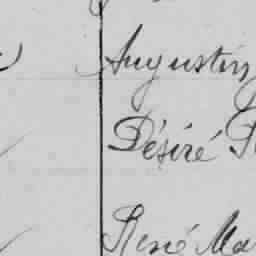 Augustin
Désiré
René Ma